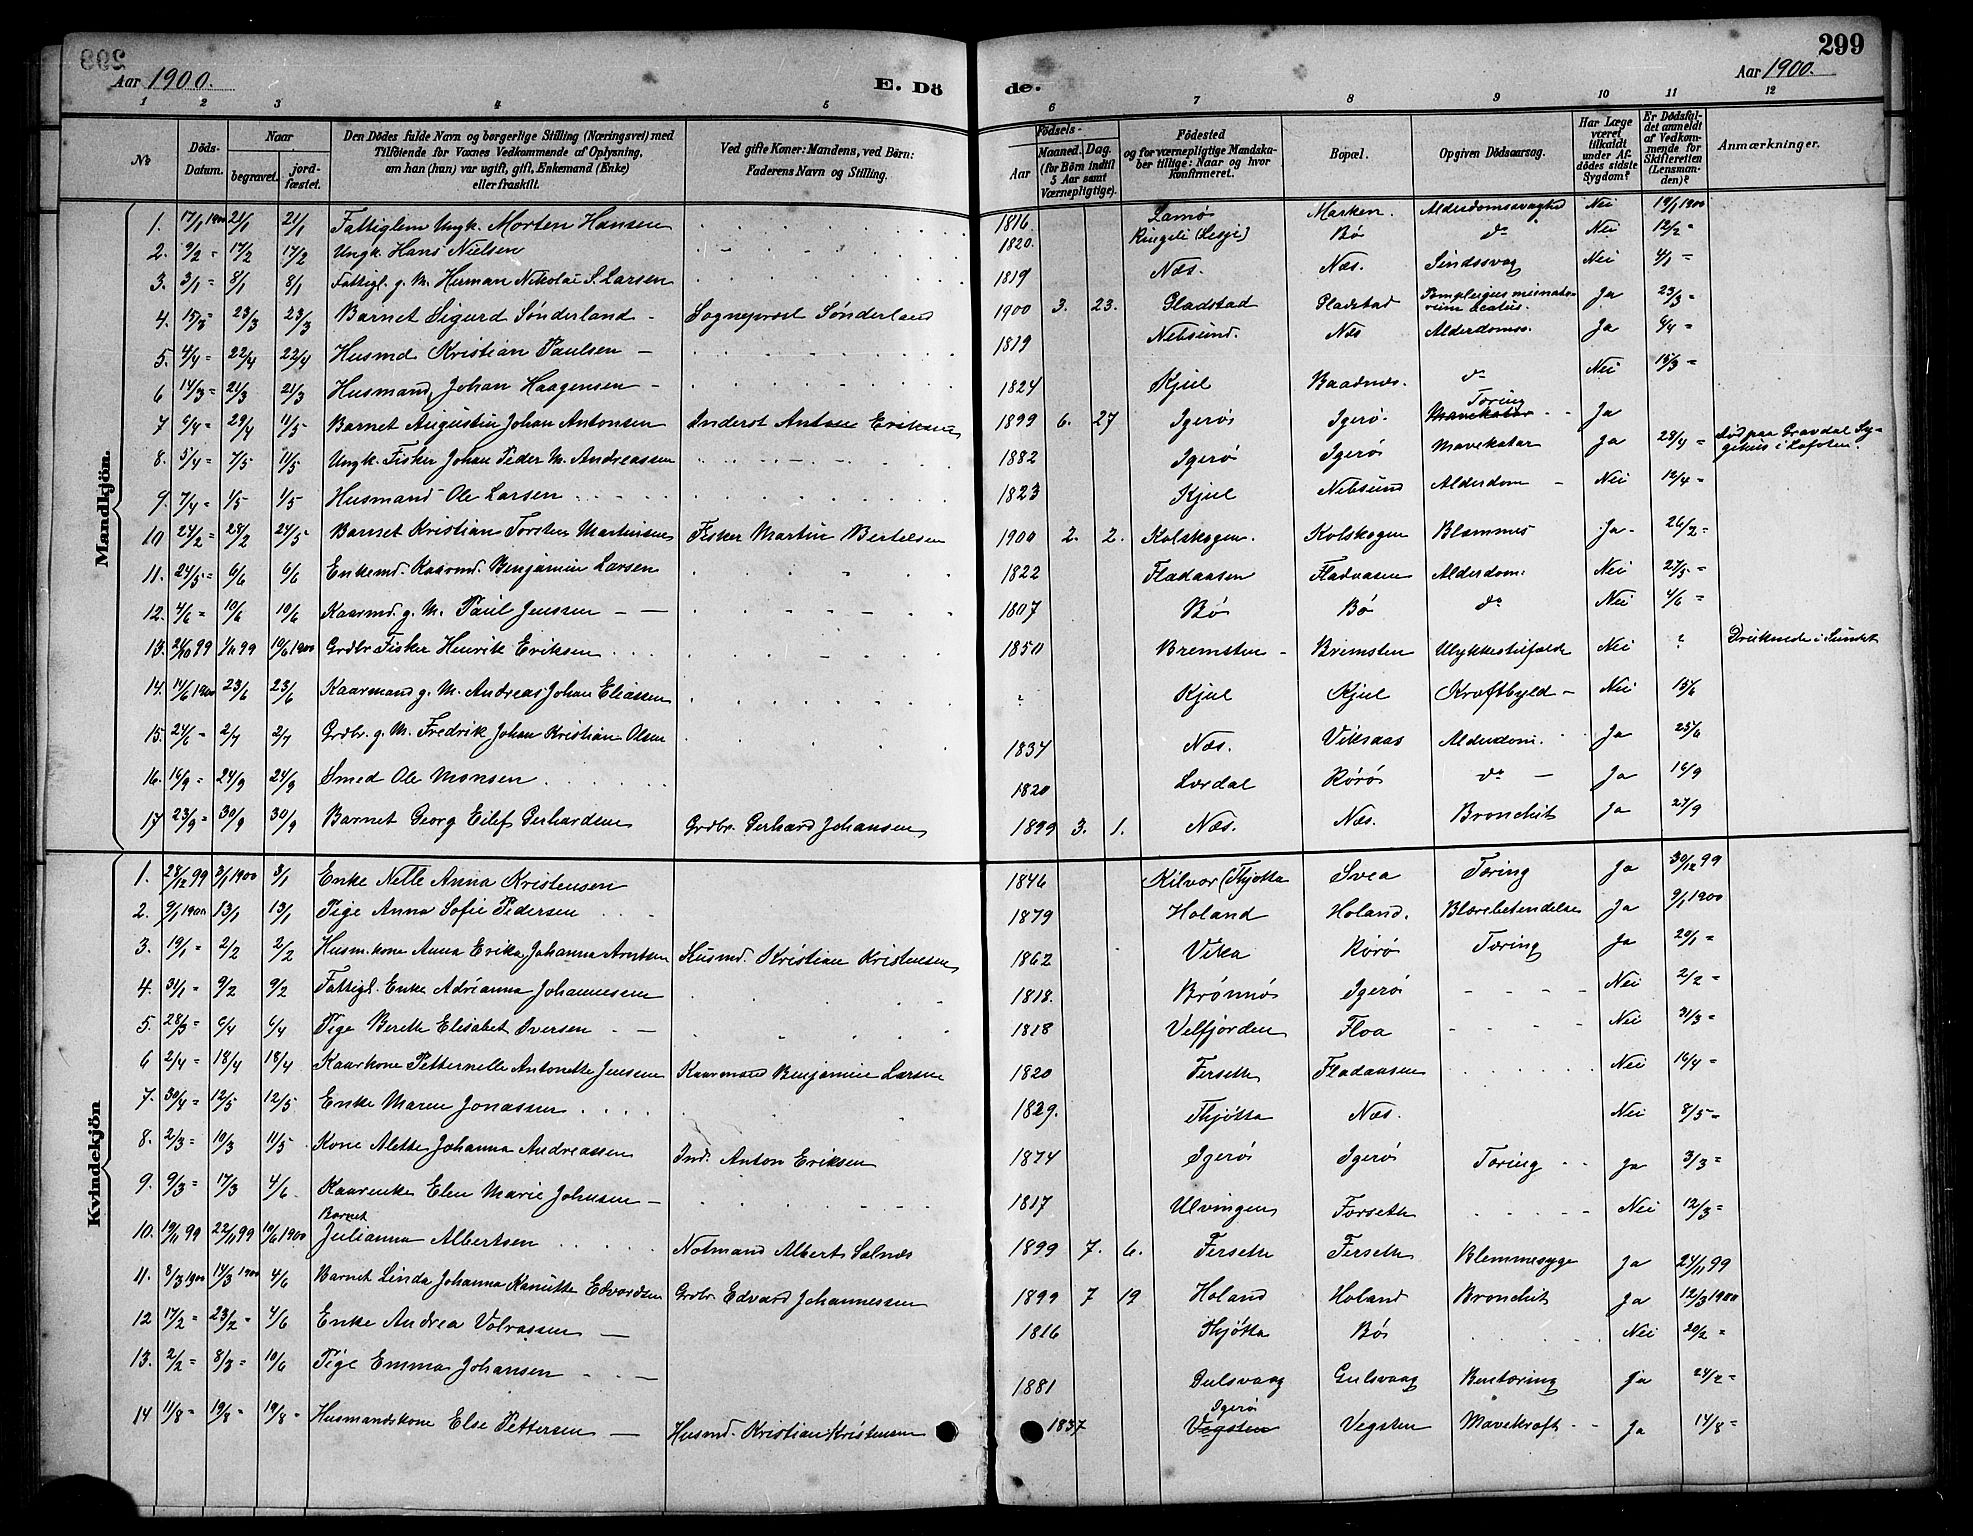 299
Aar 1900. E. Döde. Aar 1900.
1 2 3 4 5 6 7 8 9 10 11 12
No
Döds-Datum.
Naar
begravet.
jordfæstet.
Den Dödes fulde Navn og borgerlige Stilling (Næringsvei) med Tilföiende for Voxnes Vedkommende af Oplysning, om han (hun) var ugift, gift, Enkemand (Enke) eller fraskilt.
Ved gifte Koner: Mandens, ved Börn: Faderens Navn og Stilling.
Födsels-
Aar
Maaned. Dag.
(for Börn indtil 5 Aar samt Værnepligtige).
Födested og for værnepligtige Mandskaber tillige: Naar og hvor konfirmeret.
Bopæl.
Opgiven Dödsaarsag.
Har Læge været tilkaldt under Afdödes sidste Sygdom?
Er Dödsfaldet anmeldt af Vedkommende for Skifteretten (Lensmanden)?
Anmærkninger.
Mandkjön.
1. 17/1 1900 21/1 21/1 Fattiglem Ungk. Morten Hansen 1816 Lamø Marken. Alderdomssvaghed Nei 19/1 1900
2. 9/2 = 17/2 17/2 Ungk. Hans Nielsen 1820. Ringeli (Lesje) Bø do Nei 12/2 =
3. 3/1 = 8/1 8/1 Fattigl. g. M. Herman Nikolai S. Larsen 1819 Næs. Næs. Sindssvag Nei 4/1 =
4. 15/3 = 23/3 23/3 Barnet Sigurd Sønderland - Sogneprest Sønderland 1900 3. 23. Gladstad Gladstad Ja 23/3 =
5. 4/4 = 22/4 22/4 Husmd Kristian Paulsen - 1819 Nebsund. Næs Alderdomss. Ja 6/4 =
6 14/3 = 21/3 21/3 Husmand Johan Haagensen - 1824 Kjul Baadnæs. do Nei 15/3 =
7 6/4 = 29/4 11/5 Barnet Augustin Johan Antonsen Inderst Anton Eriksen 1899 6. 27 Igerø Igerø. Mavekatar Tæring Ja
8. 5/4 = 7/5 11/5 Ungk. Fisker Johan Peder M. Andreassen 1882 Igerø Igerø Mavekatar Ja 28/4 = død paa Gravdal Sygehus i Lofoten.
9. 7/4 = 1/5 1/5 Husmand Ole Larsen 1823 Kjul Nebsund Alderdom - Nei 12/4 =
10 24/2 = 28/2 24/5 Barnet Kristian Torsten Martinsen Fisker Martin Bertelsen 1900 2. 2. Kolskogen. Kolskogen Ja 26/2 =
11. 24/5 = 6/6 6/6 Enkemd. Kaarmd. Benjamin Larsen 1822 Fladaasen Fladaasen Alderdom. Nei 27/5 =
12. 4/6 = 10/6 10/6 Kaarmd. g. M. Paul Jenssen 1807 Bø Bø do Nei 4/6 =
13. 21/10 99 1/11 99 19/6 1900 Grdbr. Fisker Henrik Eriksen 1850 Bremsten - Bremsten Ulykkestilfælde Nei ? Druknede i Sundet
14. 14/6 1900 23/6 23/6 Kaarmand g. M. Andreas Johan Eliassen ? Kjul Kjul Kræftbyld - Nei 15/6
15. 24/6 = 2/7 2/7 Grdbr. g. M. Fredrik Johan Kristian Olsen 1834 Næs. Viksaas Alderdom. Ja 25/6
16. 16/9 = 24/9 24/9 Smed Ole Monsen 1820 Lærdal Rørø do - Ja 16/9
17 23/9 = 30/9 30/9 Barnet Georg Eilef Gerhardsen Grdbr. Gerhard Johansen 1899 3. 1. Næs. Næs. Bronchit Ja 27/9
Kvindekjön
1. 28/12 99 3/1 1900 3/1 Enke Nelle Anna Kristensen 1846 Kilvær (Thjøtta Svea Tæring Ja 30/12 99
2. 9/1 1900 13/1 13/1 Pige Anna Sofie Pedersen 1879 Holand Holand. Blærebetendelse Ja 9/1 1900
3. 19/1 = 2/2 2/2 Husm.kone Anna Erika Johanna Arntsen Husmd. Kristian Kristensen 1862 Vika Rørø Tæring Ja 20/1 =
4. 31/1 = 9/2 9/2 Fattigl. Enke Adrianna Johannesen 1818. Brønnø Igerø Nei 2/2 =
5. 28/3 = 6/4 6/4 Pige Bereth Elisabet Iversen 1818 Velfjorden Floa Nei 31/3 =
6 2/4 = 18/4 18/4 Kaarkone Petternelle Antonette Jenssen Kaarmand Benjamin Larsen 1820 Ferseth Fladaasen Nei 16/4 =
7. 30/4 = 12/5 12/5 Enke Maren Jonassen 1829. Thjøtta Næs. Nei 8/5 =
8. 2/3 = 10/3 11/5 Kone Alette Johanna Andreassen Ind. Anton Eriksen 1874 Igerø Igerø Tæring Ja 3/3 =
9. 9/3 = 17/3 4/6 Kaarenke Elen Marie Johnsen - 1817 Ulvingen Forseth Nei 12/3 =
10. 19/11 99 22/11 99 19/6 1900 Barnet Julianna Albertsen Notmand Albert Salnæs 1899 7. 6. Ferseth Ferseth Blemmesyge Ja 24/11 99
11. 8/3 1900 14/3 1900 4/6 Barnet Linda Johanna Kanutte Edvardsen Grdbr Edvard Johannessen 1899 7 19 Holand Holand Bronchit Ja 12/3 1900
12 17/2 = 23/2 = 4/6 Enke Andrea Volrassen - 1816 Thjøtta Bø Nei 20/2 =
13. 2/2 = 8/3 = 10/6 Pige Emma Johansen - 1881 Gulsvaag Gulsvaag Bentæring Ja 24/2 =
14 11/8 = 19/8 = 19/8 = Husmandskone Else Pettersen - Husmd. Kristian Kristensen 1837 Vegsten Igerø Vegsten Mavekræft - Ja 14/8 =